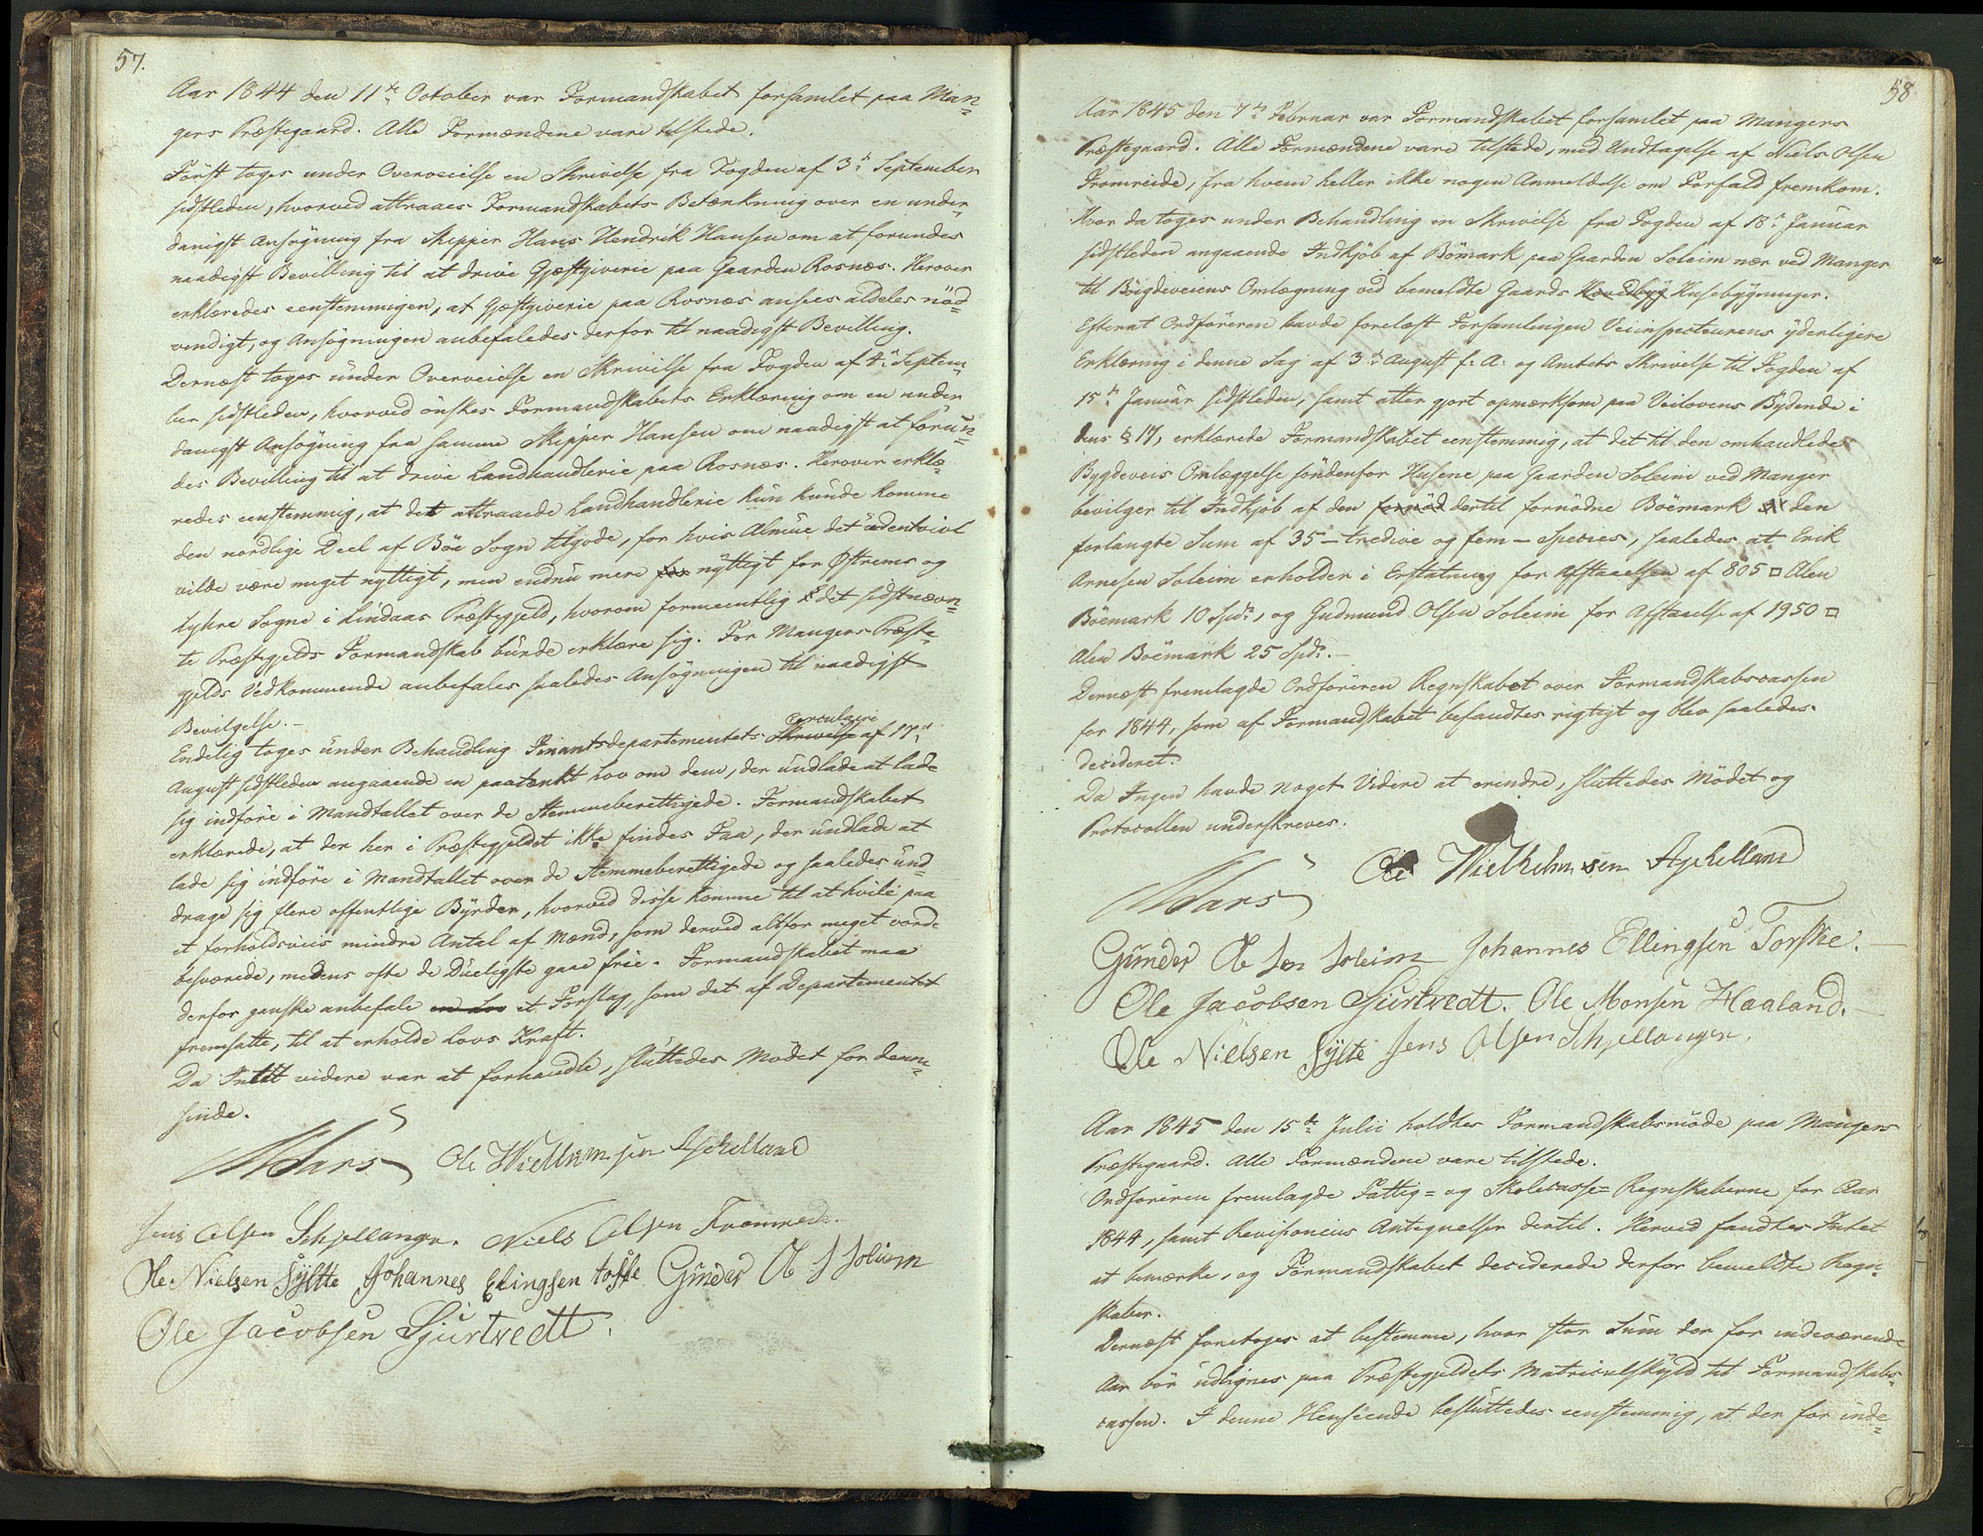 57.
Aar 1844 den 11te October var Formandskabet forsamlet paa Man=
gers Præstegaard. Alle Formændene vare tilstede.
Först toges under Overveielse en Skrivelse fra Fogden af 3d September
sidstleden, hvorved attraaes Formandskabets Betænkning over en under=
danigst Ansögning fra Skipper Hans Hendrik Hansen om at forundes
naadigst Bevilling til at drive Gjæstgiverie paa Gaarden Rosnæs. Herover
erklæredes eenstemmigen, at Gjæstgiverie paa Rosnæs ansees aldeles nöd=
vendigt, og Ansögningen anbefaledes derfor til naadigst Bevilling.
Dernæst toges under Overveielse en Skrivelse fra Fogden af 4d Septem=
ber sidstleden, hvorved önskes Formandskabets Erklæring om en under
danigst Ansögning fra samme Skipper Hansen om naadigst at forun=
des Bevilling til at drive Landhandlerie paa Rosnæs. Herover erklæ=
redes eenstemmig, at det attraaede Landhandlerie kun kunde komme
den nordlige Deel af Böe Sogn tilgode, for hvis Almue det udentvivl
vilde være meget nyttigt, men endnu mere for nyttigt for Østrems og
Lykre Sogne i Lindaas Præstegjeld, hvorom formeentlig det sidstnævn=
te Præstegjelds Formandskab burde erklære sig. For Mangers Præste=
gjelds Vedkommende anbefales saaledes Ansögningen til naadigst
Bevilgelse.-
Circulaire
Endelig toges under Behandling Finantsdepartementets Skrivelse af 17d
August sidstleden angaaende en paatænkt Lov om dem, der undlade at lade
sig indföre i Mandtallet over de Stemmeberettigede. Formandskabet
erklærede, at der her i Præstegjeldet ikke findes Faa, der undlade at
lade sig indföre i Mandtallet over de Stemmeberettigede og saaledes und=
drage sig flere offentlige Byrder, hvorved disse komme til at hvile paa
et forholdsviis mindre Antal af Mænd, som derved altfor meget vorde
besværede, medens ofte de Dueligste gaae frie. Formandskabet maa
derfor ganske anbefale en Lov et Forslag, som det af Departementet
fremsatte, til at erholde Lovs Kraft.
Da Intet videre var at forhandle, sluttedes Mödet for denne=
sinde.
Ole Wielhelmsen Aschelland
Jens Olsen Schjellanger. Niels Olsen Fromreide.
Ole Nielsen Sylte Johannes Elingsen toske Gunder O S Soliem
Ole Jacobsen Sjurtvedt.
58
Aar 1845 den 7de Februar var Formandskabet forsamlet paa Mangers
Præstegaard. Alle Formændene vare tilstede, med Undtagelse af Niels Olsen
Fromreide, fra hvem heller ikke nogen Anmeldelse om Forfald fremkom.
Hvor da toges under Behandling en Skrivelse fra Fogden af 18d Januar
sidstleden angaaende Indkjöb af Bömark paa Gaarden Soleim nær ved Manger
til Böigdeveiens Omlægning ved bemeldte Gaards Husebygninger.
Efterat Ordföreren havde forelæst Forsamlingen Veiinspecteurens yderligere
Erklæring i denne Sag af 3d August f. A. og Amtets Skrivelse til Fogden af
15d Januar sidstleden, samt atter gjort opmærksom paa Veilovens Bydende i
dens § 17, erklærede Formandskabet eenstemmig, at det til den omhandlede
Bygdeveis Omlæggelse söndenfor Husene paa Gaarden Soleim ved Manger
bevilger til Indkjöb af den fornöd dertil fornödne Böemark den
forlangte Sum af 35 - tredive og fem - Species, saaledes at Erik
Arnesen Soleim erholder i Erstatning for Afstaaelsen af 805 □ Alen
Böemark 10 Spd., og Gudmund Olsen Soleim for Afstaaelse af 1950 □
Alen Böemark 25 Spd.-
Dernæst fremlagde Ordföreren Regnskabet over Formandskabscassen
for 1844, som af Formandskabet befandtes rigtigt og blev saaledes
decideret.
Da Ingen havde noget Videre at erindre, sluttedes Mödet og
Protocollen underskreves.
Ole Wielhelmsen Aschelland
Gunder Olsen Soleim Johannes Ellingsen Torske.
Ole Jacobsen Sjurtvedt. Ole Monsen Haaland.
Ole Nielsen Sylte Jens Olsen Schjellanger.
Aar 1845 den 15de Julii holdtes Formandskabsmöde paa Mangers
Præstegaard. Alle Formændene vare tilstede.
Ordföreren fremlagde Fattig= og Skolecasse=Regnskaberne for Aar
1844, samt Revisionens Antegnelser dertil. Herved fandtes Intet
at bemærke, og Formandskabet deciderede derfor bemeldte Regn=
skaber.
Dernæst foretoges at bestemme, hvor stor Sum der for indeværende
Aar bör udlignes paa Præstegjeldets Matriculskyld til Formandskabs=
cassen. I denne Henseende besluttedes eenstemmig, at der for inde=